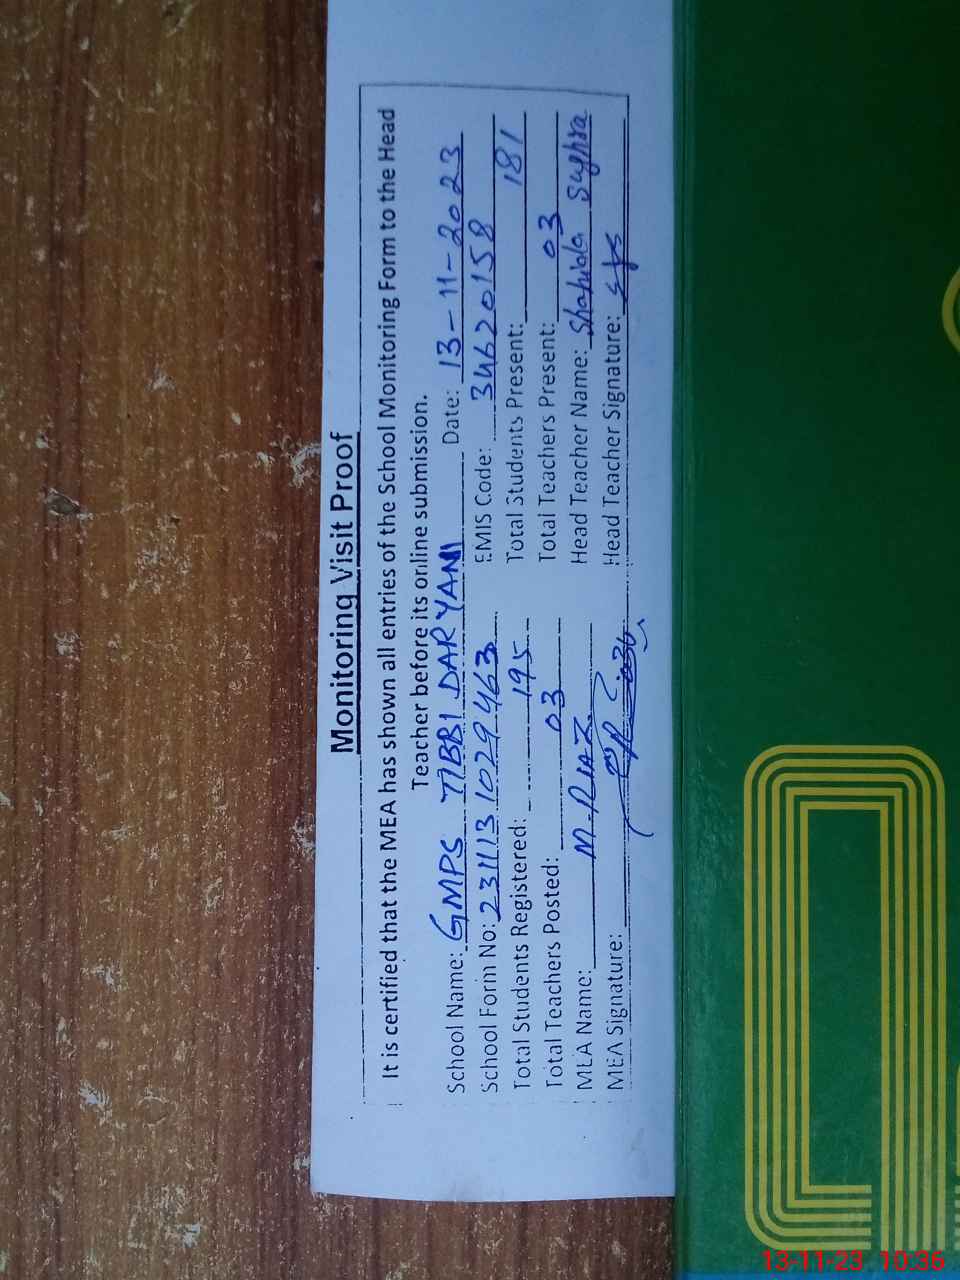 Monitoring Visit Proof
It is certified that the MEA has shown all entries of the School Monitoring Form to the Head
Teacher before its online submission.
School Name: GMPS TIBBI DARYANI Date: 13-11-2023
School Form No: 2311131029463 EMIS Code: 34620158
Total Students Registered: 195 Total Students Present: 181
Total Teachers Posted: 03 Total Teachers Present: 03
MEA Name: M. RIAZ Head Teacher Name: Shahida Sughra
MEA Signature: Head Teacher Signature:
13-11-23 10:36